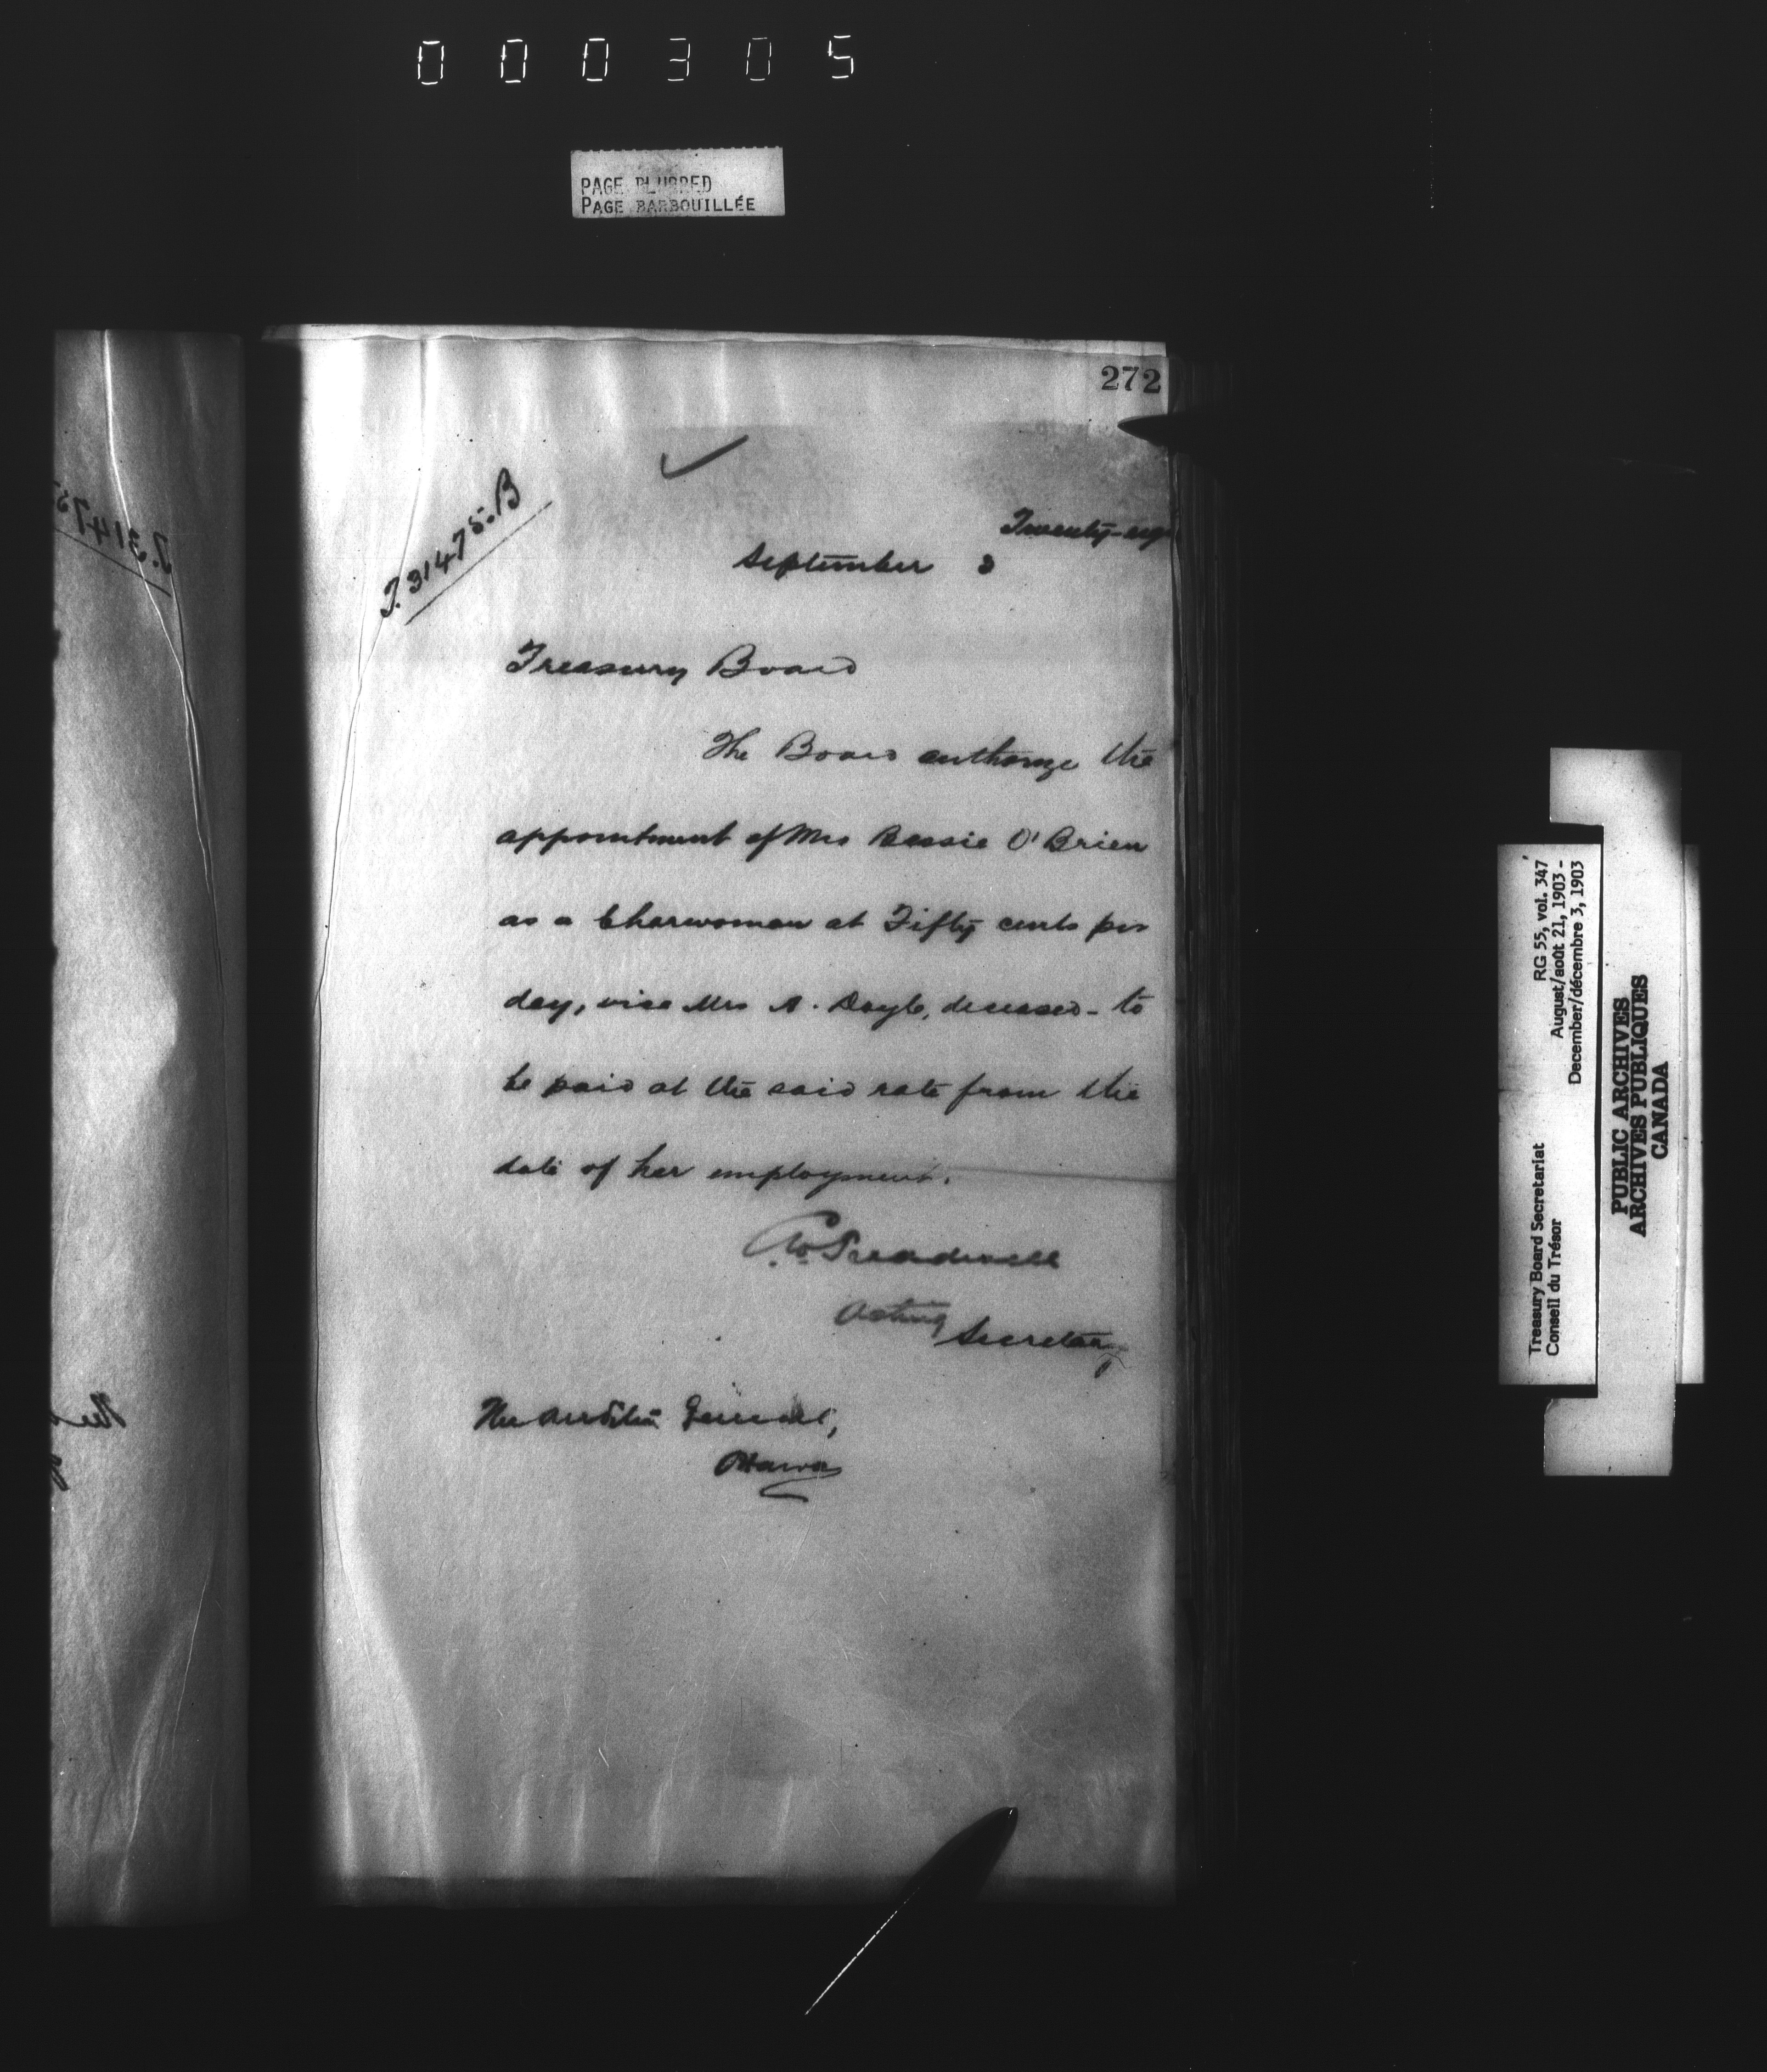 000305
PAGE BLURRED
PAGE BARBOUILLÉE
272
T. 31475. B
Twenty-eig
September 3
Treasury Board
The Board authorize the
appointment of Mrs Bessie O'Brien
as a Charwoman at Fifty cents per
day, vice Mrs A. Doyle, deceased - to
be paid at the said rate from the
date of her employment.
Treadwell
Acting Secretary
The Auditor General,
Ottawa
Treasury Board Secretariat RG 55, vol. 347
Conseil du Trésor August/août 21, 1903 -
December/décembre 3, 1903
PUBLIC ARCHIVES
ARCHIVES PUBLIQUES
CANADA